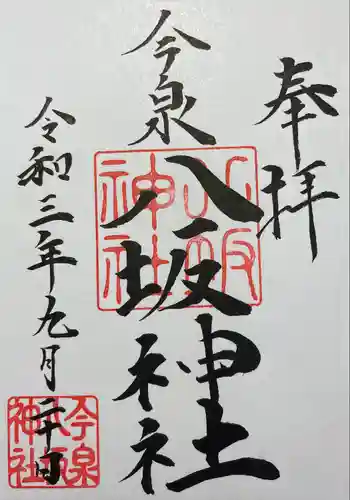 奉拝
今泉
八坂神社
令和三年九月二十日
八坂神社
今泉八坂神社